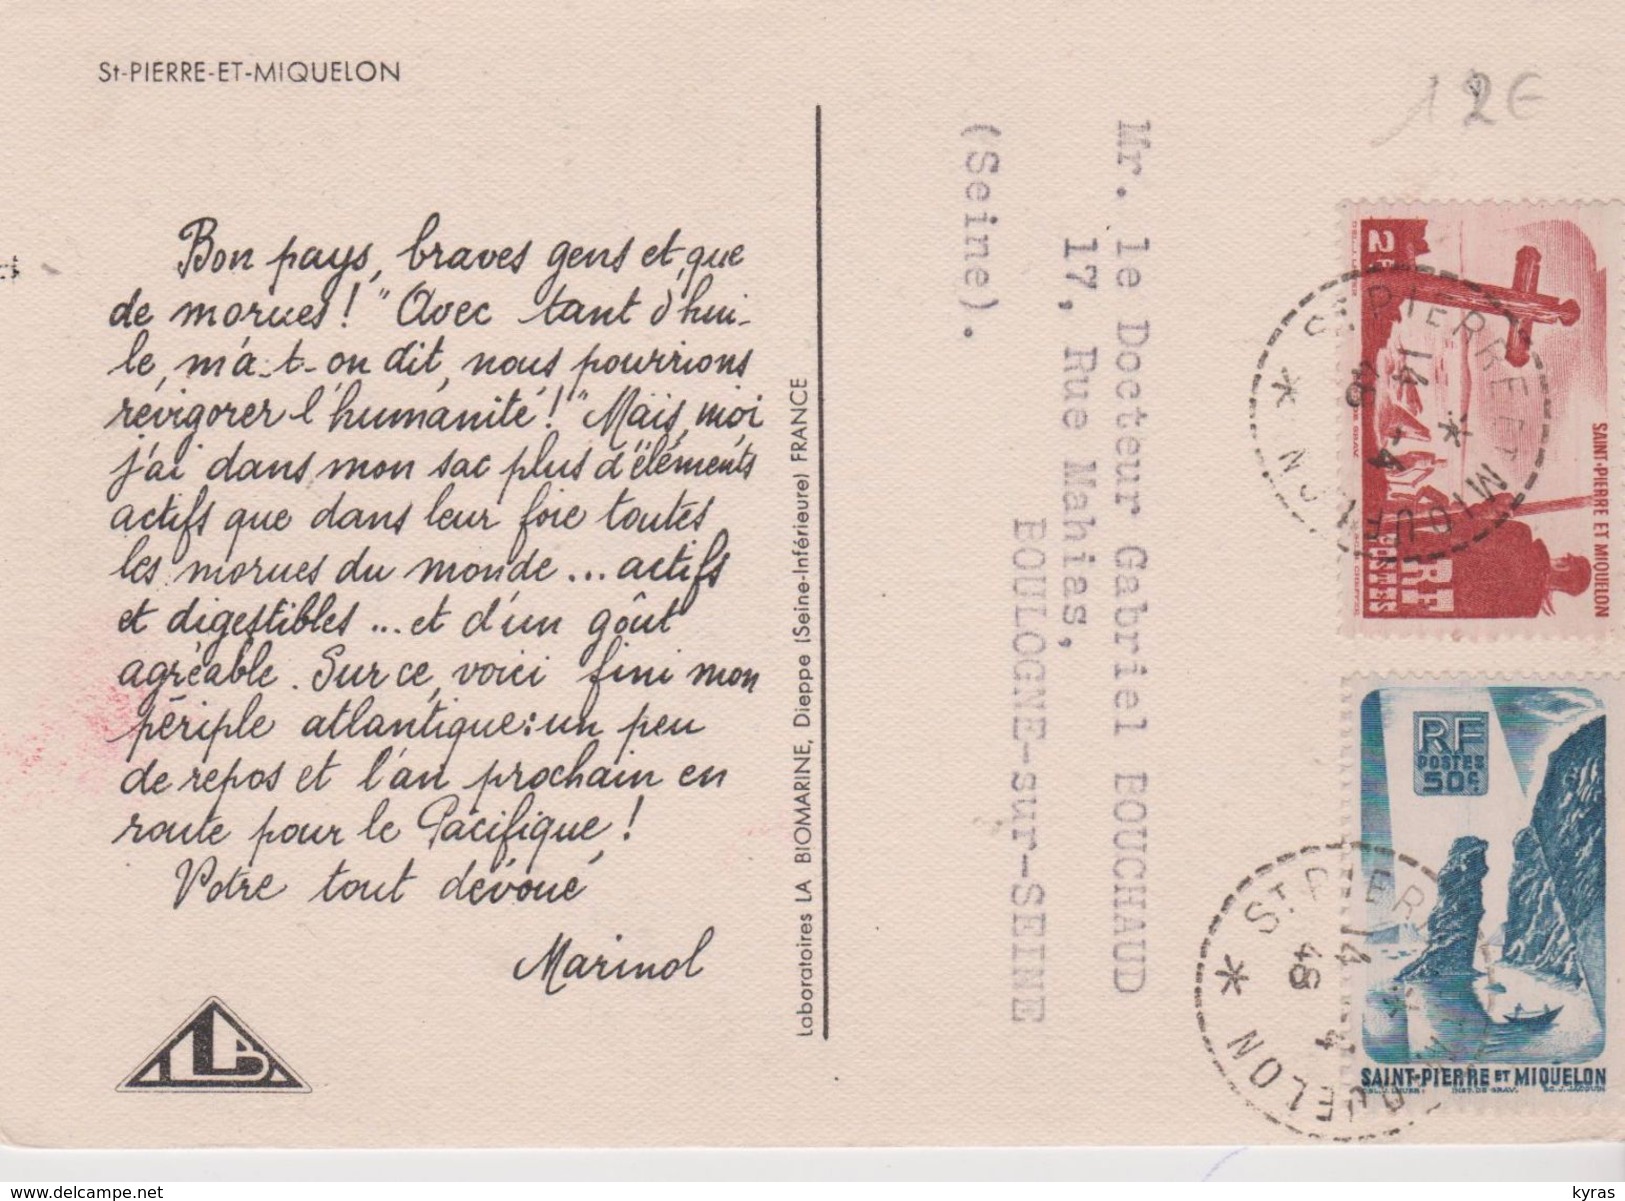 St-PIERRE-ET-MIQUELON
Bon pays, braves gens et, que
de morues! "Avec tant d'hui-
le, m'a-t-on dit, nous pourrions
révigorer l'humanité!" Mais, moi
j'ai dans mon sac plus d'éléments
actifs que dans leur foie toutes
les morues du monde... actifs
et digestibles... et d'un goût
agréable. Sur ce, voici fini mon
périple atlantique: un peu
de repos et l'an prochain en
route pour le Pacifique!
Votre tout dévoué
Marinol
Laboratoires LA BIOMARINE, Dieppe (Seine-Inférieure) FRANCE
Mr. le Docteur Gabriel BOUCHAUD
17, Rue Mahias,
BOULOGNE-sur-SEINE
(Seine).
12€
SAINT-PIERRE ET MIQUELON
RF
POSTES
ST PIERRE ET MIQUELON
14 -4
48
RF
POSTES
50c
SAINT-PIERRE ET MIQUELON
ST PIERRE ET MIQUELON
14 4
48
delcampe.net
kyras